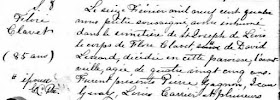 S. 8
Flore
Clavet
(85 ans)
Le seize Février mil neuf cent quatre
nous prêtre soussigné, avons inhumé
dans le cimetière de St Joseph de Lévis
le corps de Flore Clavet, de David
décédée en cette paroisse, l'avant
veille, agée de quatre vingt cinq ans.
Furent présents Pierre Gagnon,
Louis Carrier & plusieurs